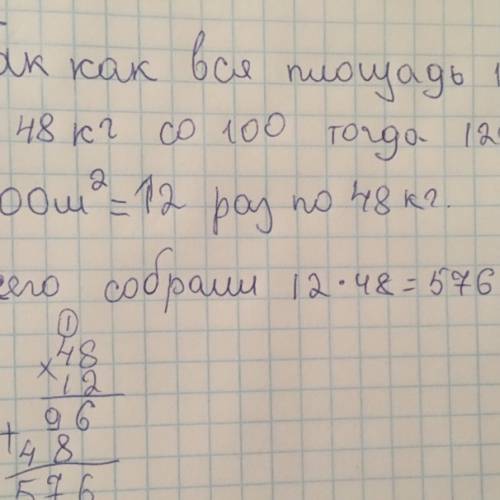 ак как вся площадь 1
48 кг со 100 тогда 12
00м²=12 раз по 48 кг.
сего собрали 12·48=576
1
×48
12
96
+48
576